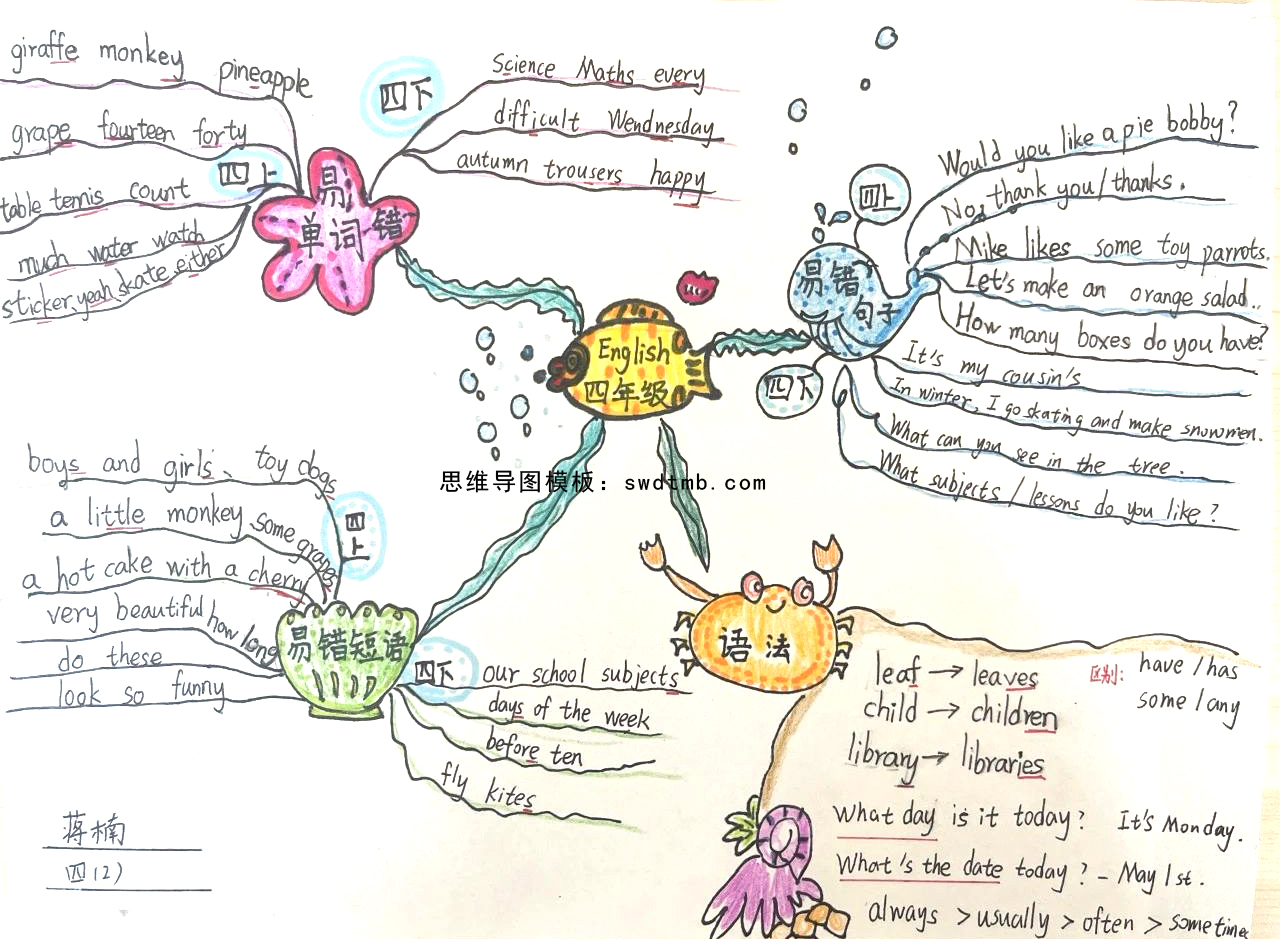 giraffe monkey pineapple
grape fourteen forty
四上
table tennis count
much water watch
sticker、yeah、skate、either
四下
Science Maths every
difficult Wendnesday
autumn trousers happy
易错
单词
English
四年级
四上
易错
句子
Would you like a pie bobby?
No, thank you/thanks.
Mike likes some toy parrots.
Let's make an orange salad..
How many boxes do you have?
四下
It's my cousin's
In winter, I go skating and make snowmen.
What can you see in the tree.
What subjects / lessons do you like?
思维导图模板：swdtmb.com
四上
boys and girls、toy dogs
a little monkey some grapes
a hot cake with a cherry
very beautiful how long
do these
look so funny
易错短语
四下
our school subjects
days of the week
before ten
fly kites
语法
leaf → leaves
child → children
library → libraries
区别:
have / has
some / any
What day is it today? It's Monday.
What's the date today? - May 1st.
always > usually > often > sometimes
蒋楠
四(2)